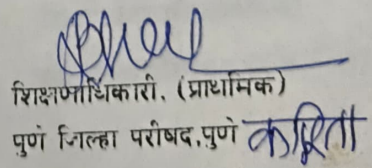 शिक्षणाधिकारी, (प्राथमिक)
पुणे जिल्हा परीषद,पुणे करिता